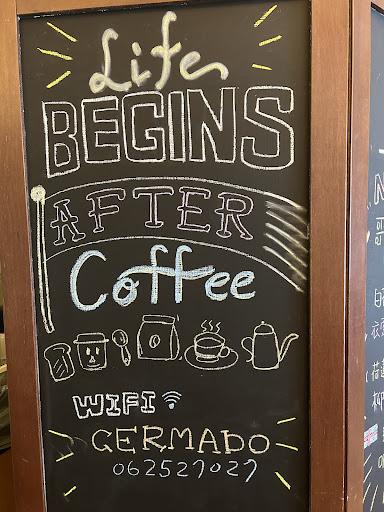 Life
BEGINS
AFTER
Coffee
WIFI
GERMADO
062527027